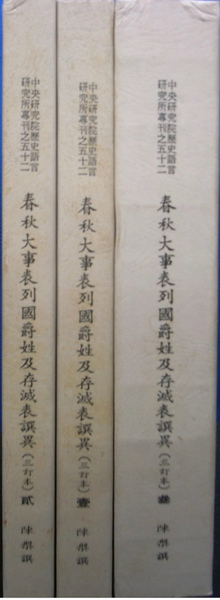 中央研究院歷史語言
研究所專刊之五十二
春秋大事表列國爵姓及存滅表譔異(三訂本)叁 陳槃撰
中央研究院歷史語言
研究所專刊之五十二
春秋大事表列國爵姓及存滅表譔異(三訂本)壹 陳槃撰
中央研究院歷史語言
研究所專刊之五十二
春秋大事表列國爵姓及存滅表譔異(三訂本)貳 陳槃撰